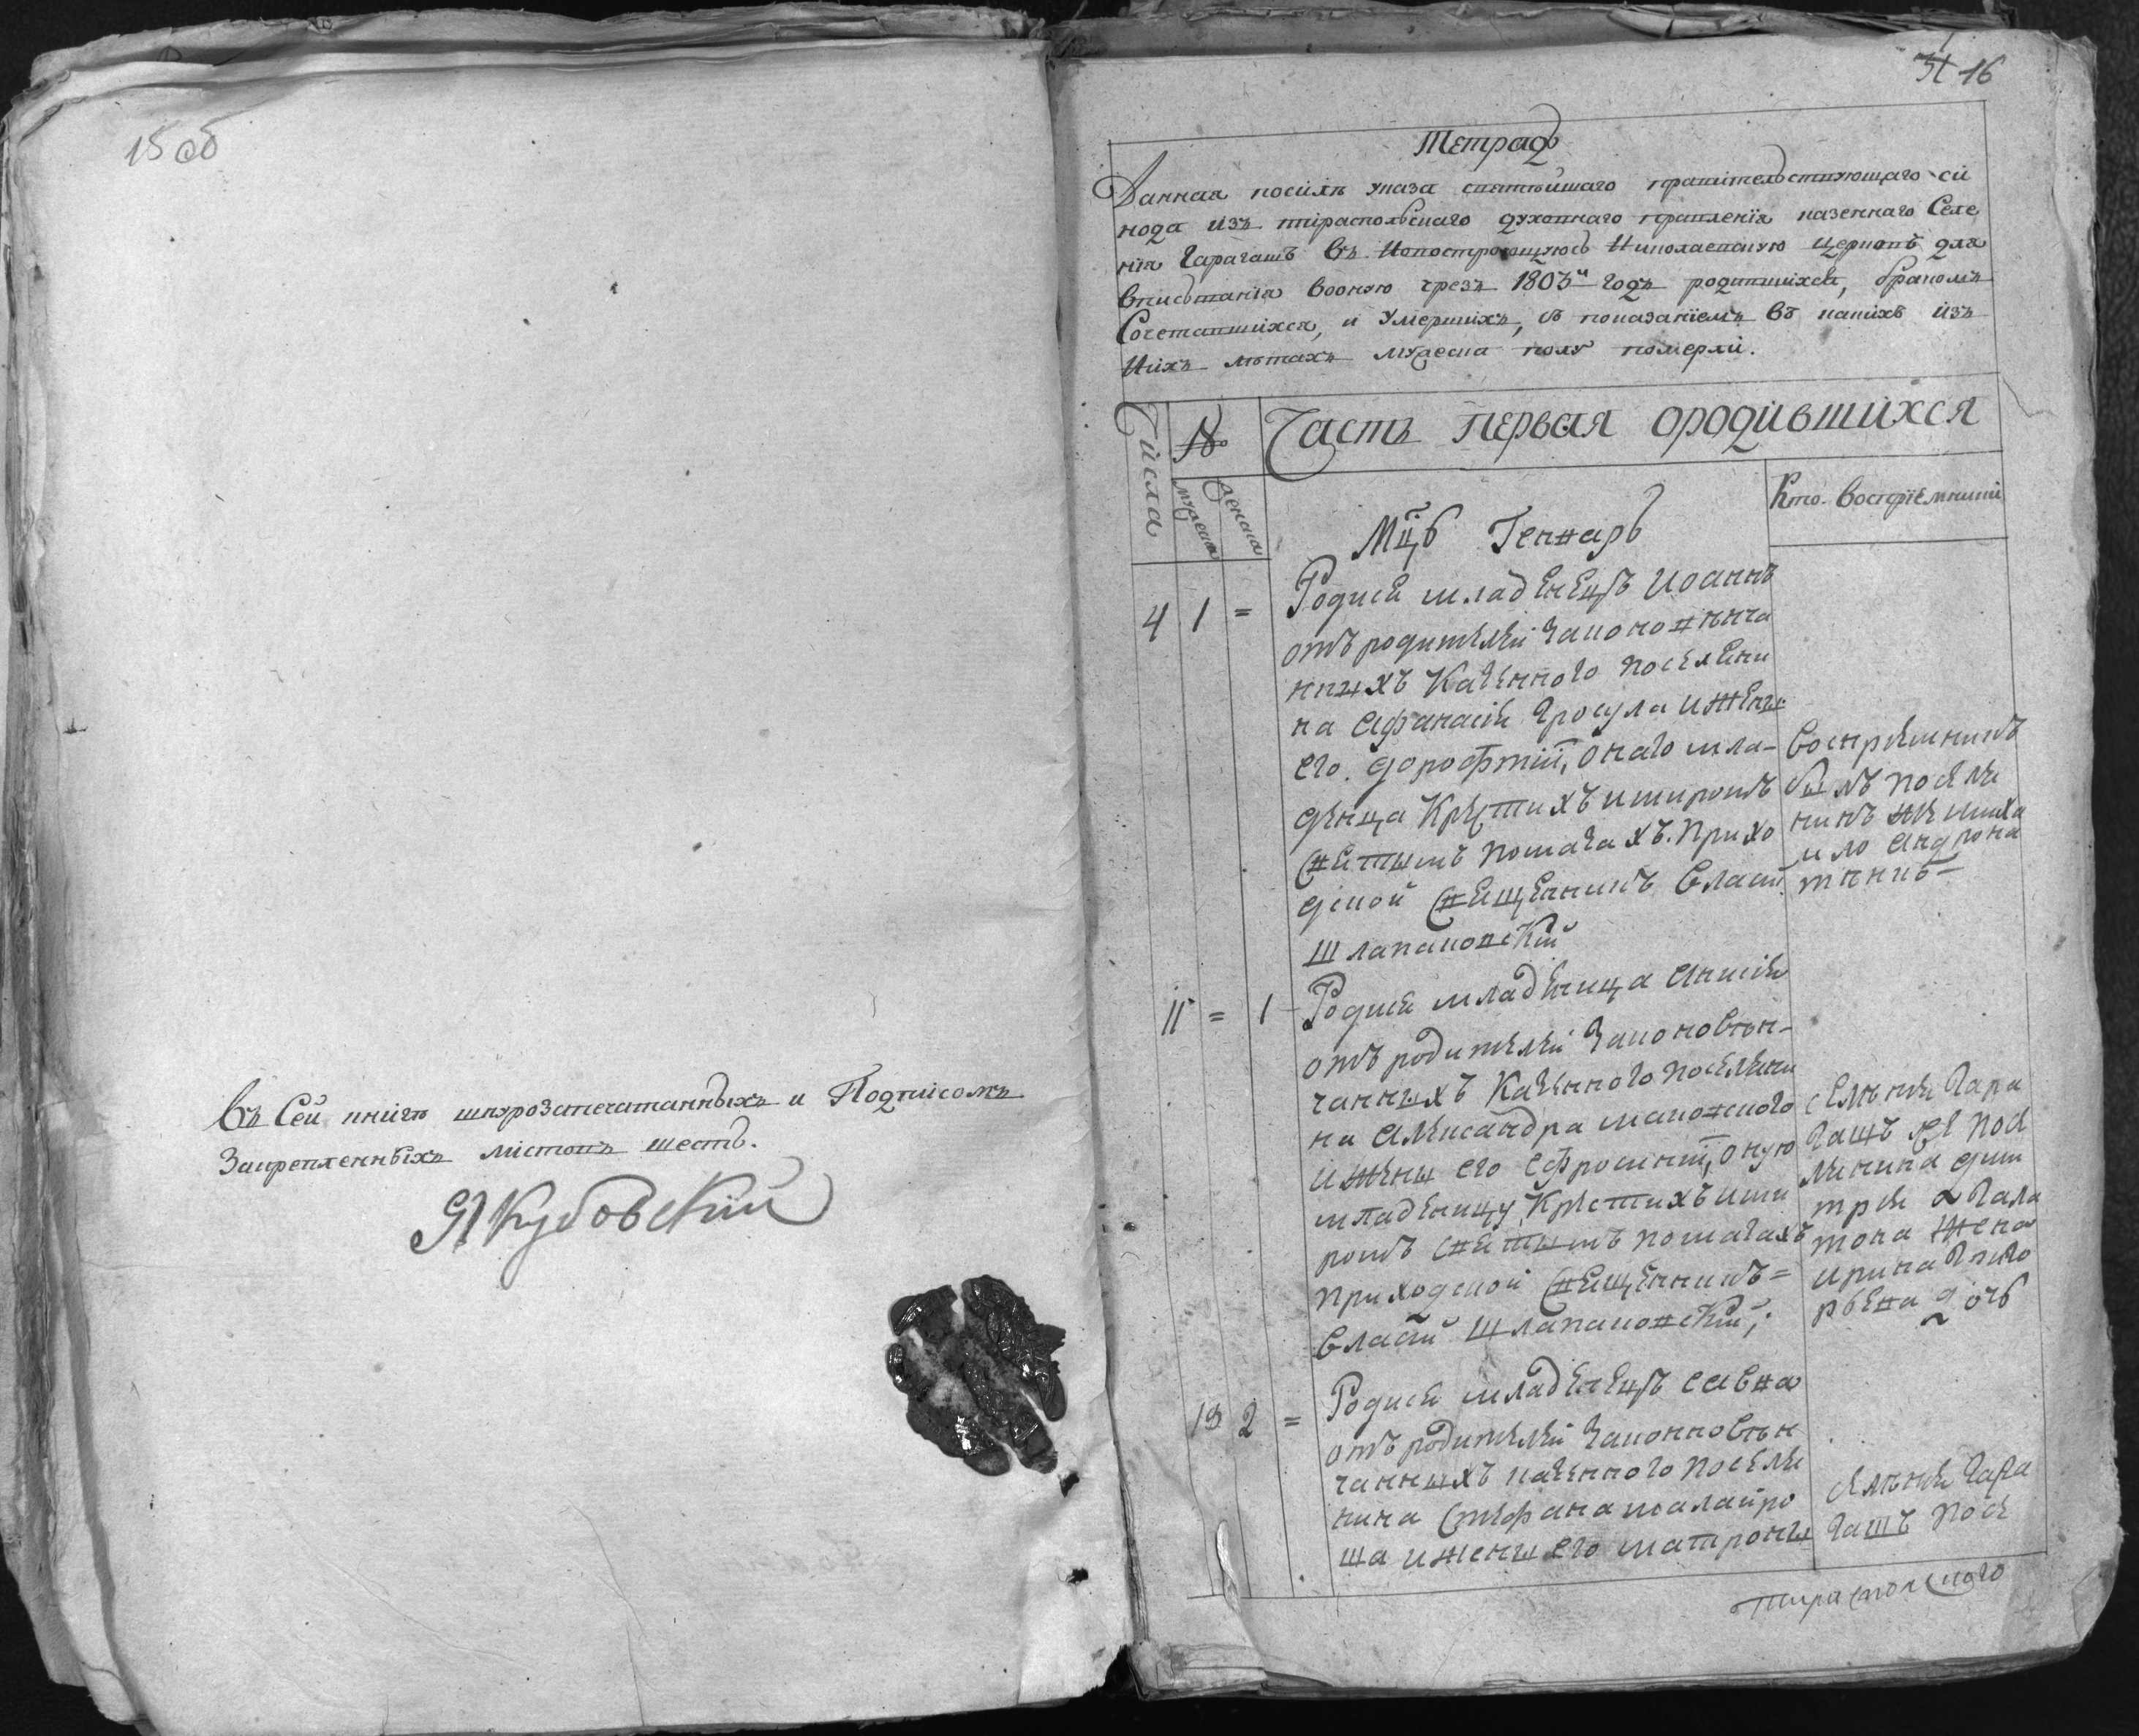 15 об
Въ Сей книгѣ шнурозапечатанныхъ и Подписомъ
Закрепленныхъ листовъ шесть.
Якубовскій
16
Тетрадь
Данная посилѣ указа святѣйшаго правительствующаго си
нода изъ тираспольскаго духовнаго правленія казеннаго Селе
нія Карагашъ въ Новостроющуюсь Николаевскую церковь для
вписыванія вооную чрезъ 1803й годъ родившихся, бракомъ
Сочетавшихся, и Умершихъ, съ показаніемъ въ какихъ изъ
Нихъ лѣтахъ мужеска полу померли.
Числа
№
Часть первая ородившихся
мужеска
женска
Мцъ Генварь
Кто воспріемники
4 1 =
Родися младенецъ Иоаннъ
отъ родителей законовѣнча
нныхъ Казенного поселени
на Афанасія Гросула ижены
его. дорофтіи, онаго мла-
денца Крестихъ имиромъ
Святымъ помазахъ. Прихо
дской Священникъ Власій
Шлапаковскій
Воспріемникъ
былъ поселе
нинъ же михаило андрона
11 = 1
Родися младеница Анисія
отъ родителей Законовѣн-
чанныхъ Казенного поселени
на Александра маковского
ижены его Ефросиніи, оную
младеницу Крестихъ ими
ромъ Святымъ помазахъ
приходской Священникъ =
Власій Шлапаковскій;
Селенія Кара
гашъ посе
ленина дими
трія гала
тона жена
ирина григо
рьева дочь
19 2 =
Родися младенецъ Савва
отъ родителей Законновѣн
чанныхъ казенного поселе
нина Стефана малайро
ша ижены его матроны
Селенія Кара
гашъ посе
тираспольского